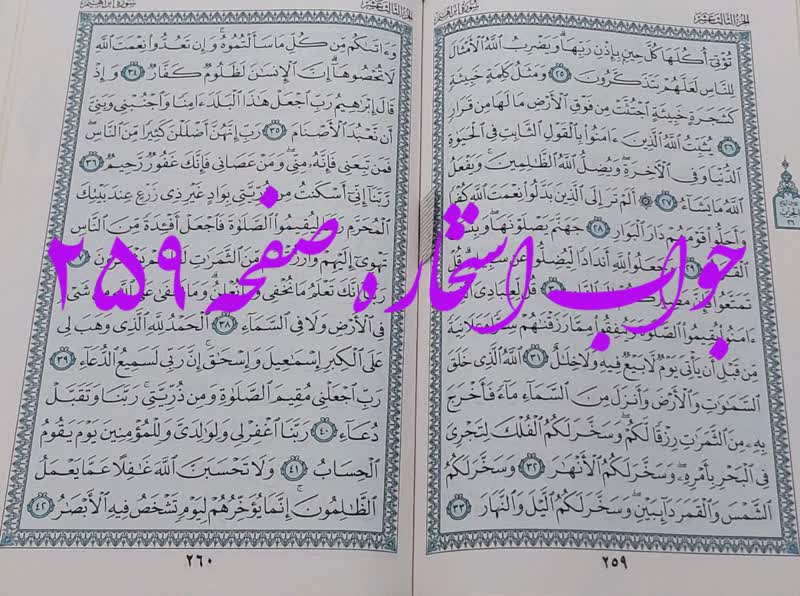 الجزء الثالث عشر
سورة إبراهيم
تُؤْتِىٓ أُكُلَهَا كُلَّ حِينٍۭ بِإِذْنِ رَبِّهَا ۗ وَيَضْرِبُ ٱللَّهُ ٱلْأَمْثَالَ
لِلنَّاسِ لَعَلَّهُمْ يَتَذَكَّرُونَ ٢٥ وَمَثَلُ كَلِمَةٍ خَبِيثَةٍ
كَشَجَرَةٍ خَبِيثَةٍ ٱجْتُثَّتْ مِن فَوْقِ ٱلْأَرْضِ مَا لَهَا مِن قَرَارٍ
٢٦ يُثَبِّتُ ٱللَّهُ ٱلَّذِينَ ءَامَنُوا۟ بِٱلْقَوْلِ ٱلثَّابِتِ فِى ٱلْحَيَوٰةِ
ٱلدُّنْيَا وَفِى ٱلْءَاخِرَةِ ۖ وَيُضِلُّ ٱللَّهُ ٱلظَّـٰلِمِينَ ۚ وَيَفْعَلُ
ٱللَّهُ مَا يَشَآءُ ٢٧ ۞ أَلَمْ تَرَ إِلَى ٱلَّذِينَ بَدَّلُوا۟ نِعْمَتَ ٱللَّهِ كُفْرًا
وَأَحَلُّوا۟ قَوْمَهُمْ دَارَ ٱلْبَوَارِ ٢٨ جَهَنَّمَ يَصْلَوْنَهَا ۖ وَبِئْسَ
وَجَعَلُوا۟ لِلَّهِ أَندَادًا لِّيُضِلُّوا۟ عَن سَبِيلِهِۦ ۗ قُلْ
تَمَتَّعُوا۟ فَإِنَّ مَصِيرَكُمْ إِلَى ٱلنَّارِ ٣٠ قُل لِّعِبَادِىَ ٱلَّذِينَ
ءَامَنُوا۟ يُقِيمُوا۟ ٱلصَّلَوٰةَ وَيُنفِقُوا۟ مِمَّا رَزَقْنَـٰهُمْ سِرًّا وَعَلَانِيَةً
مِّن قَبْلِ أَن يَأْتِىَ يَوْمٌ لَّا بَيْعٌ فِيهِ وَلَا خِلَـٰلٌ ٣١ ٱللَّهُ ٱلَّذِى خَلَقَ
ٱلسَّمَـٰوَٰتِ وَٱلْأَرْضَ وَأَنزَلَ مِنَ ٱلسَّمَآءِ مَآءً فَأَخْرَجَ
بِهِۦ مِنَ ٱلثَّمَرَٰتِ رِزْقًا لَّكُمْ ۖ وَسَخَّرَ لَكُمُ ٱلْفُلْكَ لِتَجْرِىَ
فِى ٱلْبَحْرِ بِأَمْرِهِۦ ۖ وَسَخَّرَ لَكُمُ ٱلْأَنْهَـٰرَ ٣٢ وَسَخَّرَ لَكُمُ
ٱلشَّمْسَ وَٱلْقَمَرَ دَآئِبَيْنِ ۖ وَسَخَّرَ لَكُمُ ٱلَّيْلَ وَٱلنَّهَارَ ٣٣
٢٥٩
الجزء الثالث عشر
سورة إبراهيم
وَءَاتَىٰكُم مِّن كُلِّ مَا سَأَلْتُمُوهُ ۚ وَإِن تَعُدُّوا۟ نِعْمَتَ ٱللَّهِ
لَا تُحْصُوهَآ ۗ إِنَّ ٱلْإِنسَـٰنَ لَظَلُومٌ كَفَّارٌ ٣٤ وَإِذْ
قَالَ إِبْرَٰهِيمُ رَبِّ ٱجْعَلْ هَـٰذَا ٱلْبَلَدَ ءَامِنًا وَٱجْنُبْنِى وَبَنِىَّ
أَن نَّعْبُدَ ٱلْأَصْنَامَ ٣٥ رَبِّ إِنَّهُنَّ أَضْلَلْنَ كَثِيرًا مِّنَ ٱلنَّاسِ ۖ
فَمَن تَبِعَنِى فَإِنَّهُۥ مِنِّى ۖ وَمَنْ عَصَانِى فَإِنَّكَ غَفُورٌ رَّحِيمٌ ٣٦
رَّبَّنَآ إِنِّىٓ أَسْكَنتُ مِن ذُرِّيَّتِى بِوَادٍ غَيْرِ ذِى زَرْعٍ عِندَ بَيْتِكَ
ٱلْمُحَرَّمِ رَبَّنَا لِيُقِيمُوا۟ ٱلصَّلَوٰةَ فَٱجْعَلْ أَفْـِٔدَةً مِّنَ ٱلنَّاسِ
تَهْوِىٓ إِلَيْهِمْ وَٱرْزُقْهُم مِّنَ ٱلثَّمَرَٰتِ لَعَلَّهُمْ يَشْكُرُونَ ٣٧
رَبَّنَآ إِنَّكَ تَعْلَمُ مَا نُخْفِى وَمَا نُعْلِنُ ۗ وَمَا يَخْفَىٰ عَلَى ٱللَّهِ مِن شَىْءٍ
فِى ٱلْأَرْضِ وَلَا فِى ٱلسَّمَآءِ ٣٨ ٱلْحَمْدُ لِلَّهِ ٱلَّذِى وَهَبَ لِى
عَلَى ٱلْكِبَرِ إِسْمَـٰعِيلَ وَإِسْحَـٰقَ ۚ إِنَّ رَبِّى لَسَمِيعُ ٱلدُّعَآءِ ٣٩
رَبِّ ٱجْعَلْنِى مُقِيمَ ٱلصَّلَوٰةِ وَمِن ذُرِّيَّتِى ۚ رَبَّنَا وَتَقَبَّلْ
دُعَآءِ ٤٠ رَبَّنَا ٱغْفِرْ لِى وَلِوَٰلِدَىَّ وَلِلْمُؤْمِنِينَ يَوْمَ يَقُومُ
ٱلْحِسَابُ ٤١ وَلَا تَحْسَبَنَّ ٱللَّهَ غَـٰفِلًا عَمَّا يَعْمَلُ
ٱلظَّـٰلِمُونَ ۚ إِنَّمَا يُؤَخِّرُهُمْ لِيَوْمٍ تَشْخَصُ فِيهِ ٱلْأَبْصَـٰرُ ٤٢
٢٦٠
جواب استخاره صفحه ۲۵۹